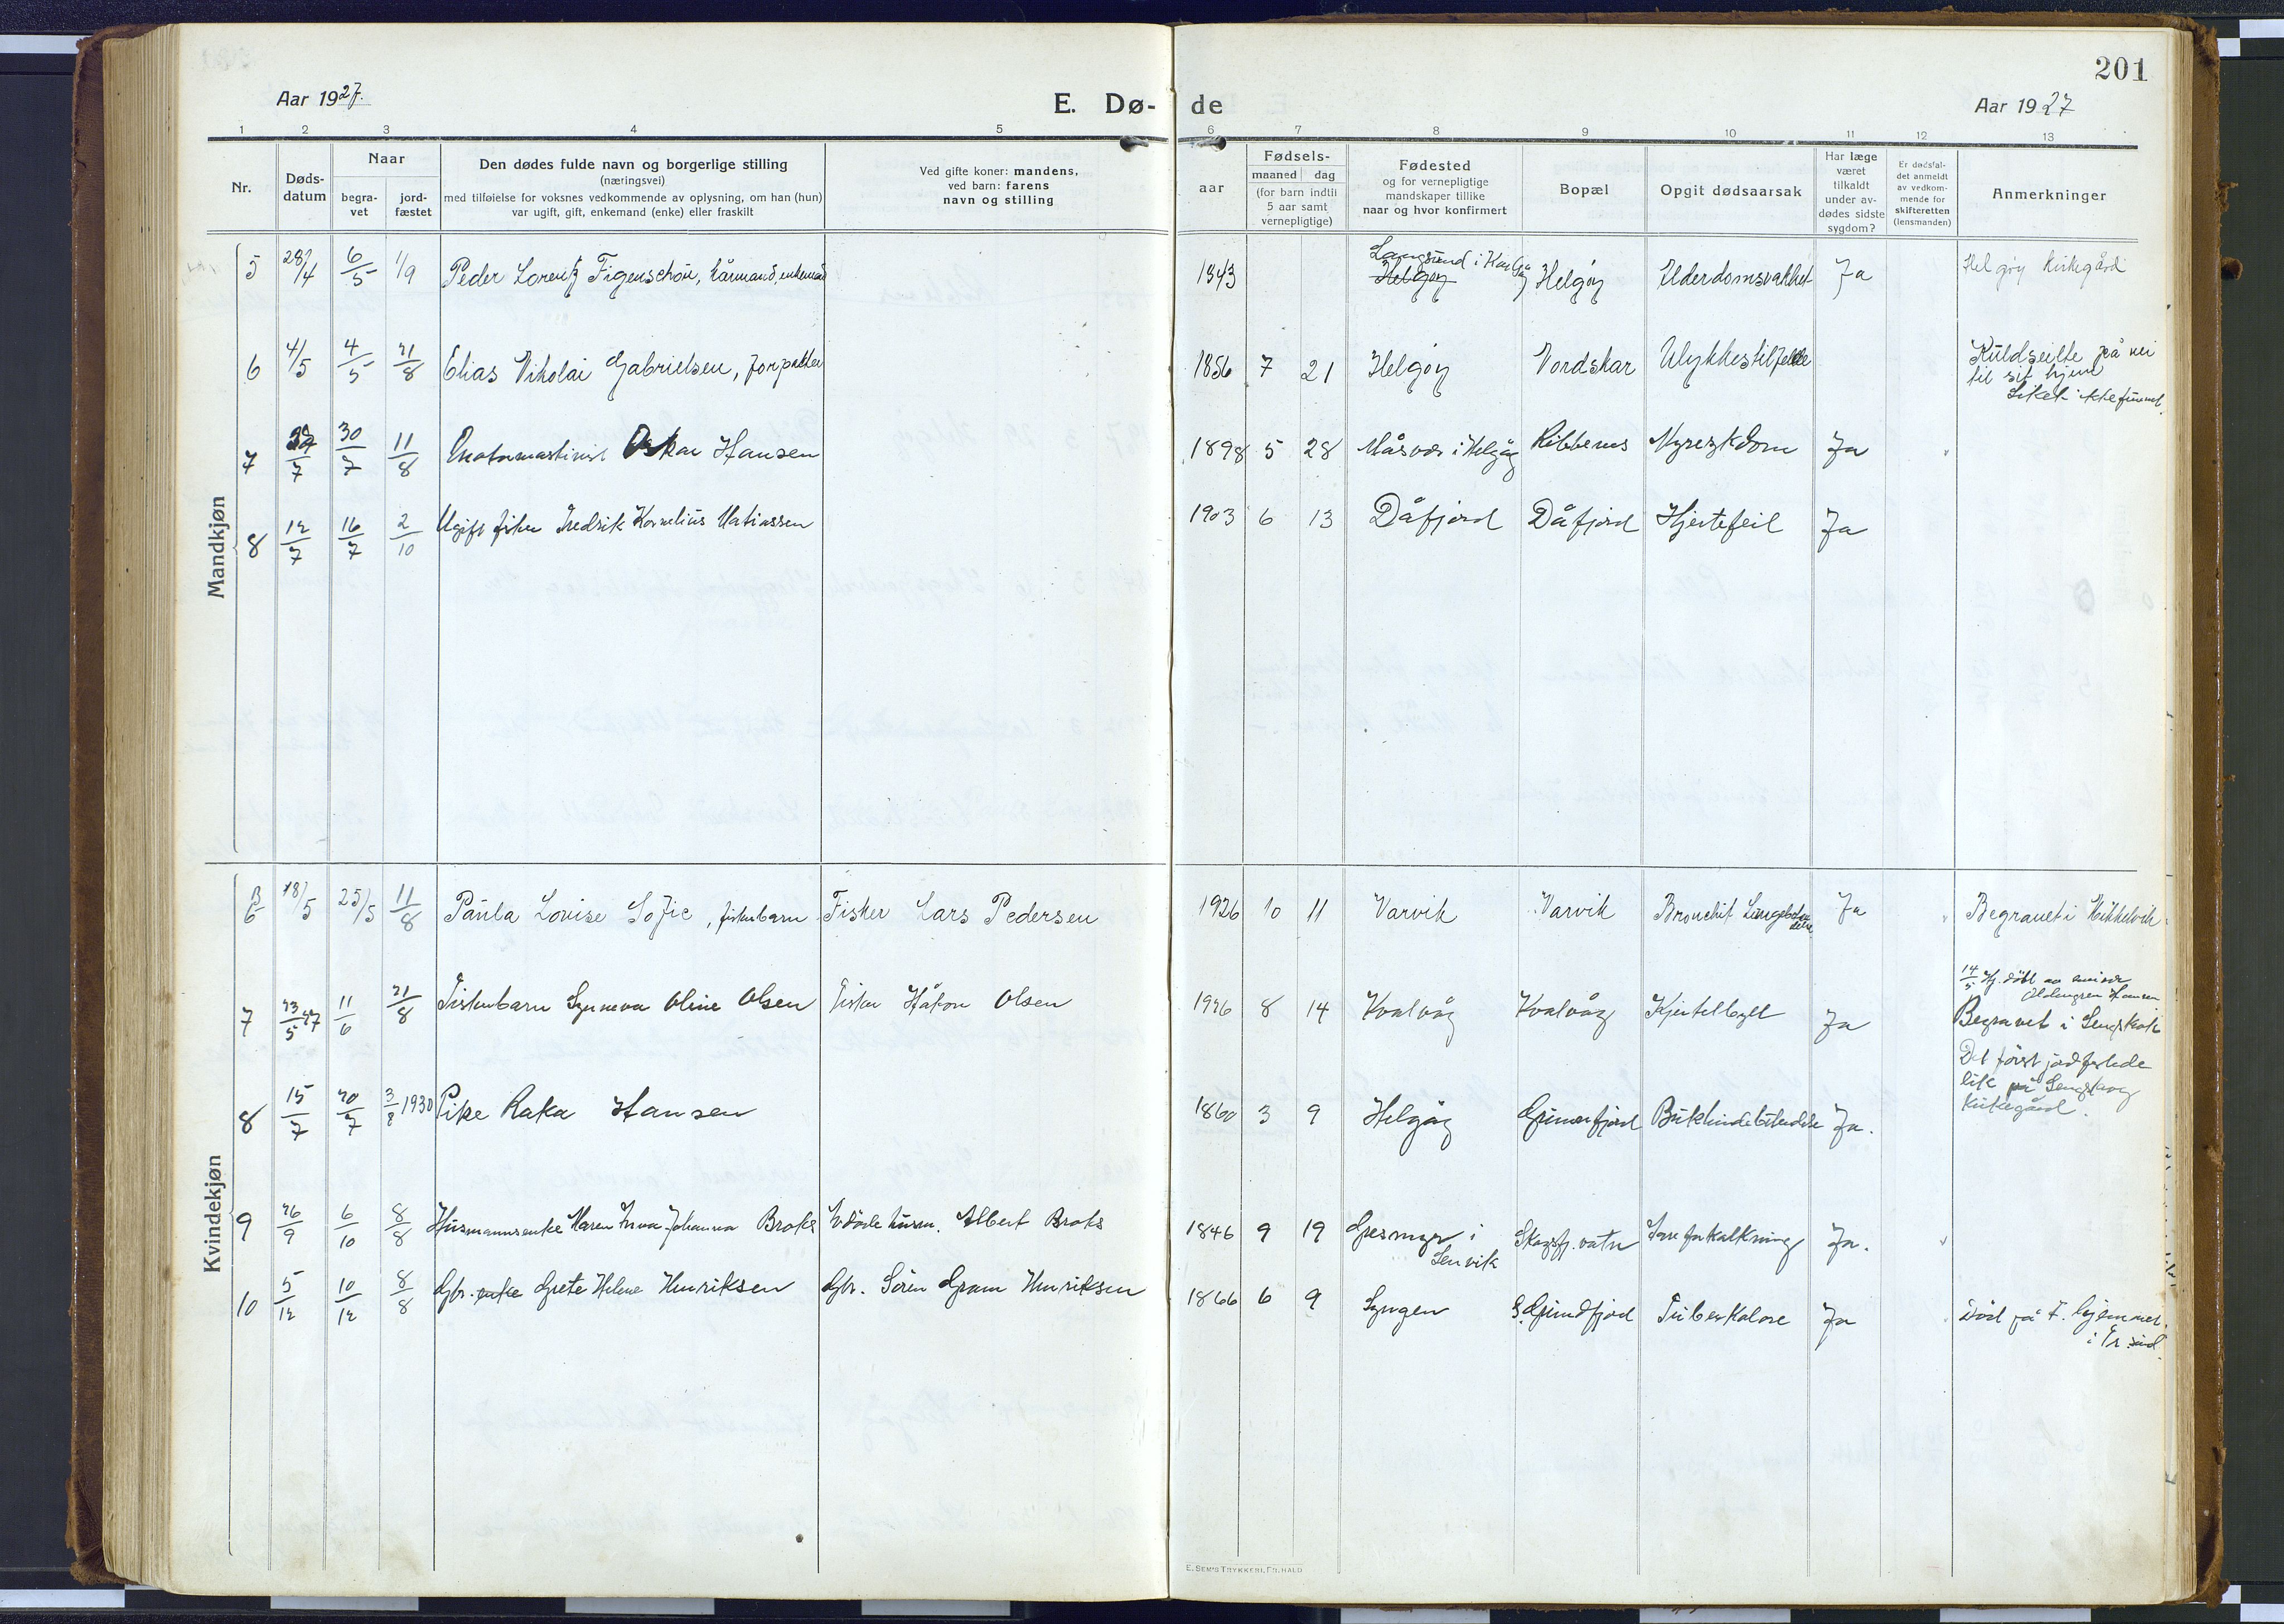 201
Aar 1927.
E. Dø-
de
Aar 1927
1 2 3 4 5 6 7 8 9 10 11 12 13
Nr.
Døds-
datum
Naar
begra-
vet
jord-
fæstet
Den dødes fulde navn og borgerlige stilling
(næringsvei)
med tilføielse for voksnes vedkommende av oplysning, om han (hun)
var ugift, gift, enkemand (enke) eller fraskilt
Ved gifte koner: mandens,
ved barn: farens
navn og stilling
aar
Fødsels-
maaned dag
(for barn indtil
5 aar samt
vernepligtige)
Fødested
og for vernepligtige
mandskaper tillike
naar og hvor konfirmert
Bopæl
Opgit dødsaarsak
Har læge
været
tilkaldt
under av-
dødes sidste
sygdom?
Er dødsfal-
det anmeldt
av vedkom-
mende for
skifteretten
(lensmanden)
Anmerkninger
Mandkjøn
5 28/4 6/5 1/9 Peder Lorentz Figenschou, kårmand, enkemand 1843 Langsund i Karlsøy Helgøy Helgøy Elderdomsvakhet Ja Helgøy kirkegård
6 4/5 4/5 21/8 Elias Nikolai Gabrielsen, forpakter 1856 7 21 Helgøy Nordskar Ulykkestilfelde Kuldseilte på vei
til sit hjem
Liket ikke funnet.
7 7 30/7 11/8 Motormaskinist Oskar Hansen 1898 5 28 Måsvær i Helgøy Ribbenes Nyresykdom Ja
8 12/7 16/7 2/10 Ugift fisker Fredrik Kornelius Matiassen 1903 6 13 Dåfjord Dåfjord Hjertefeil Ja
Kvindekjøn
6 18/5 25/5 11/8 Paula Lovise Sofie, fiskerbarn Fisker Lars Pedersen 1926 10 11 Varvik Varvik Bronchit Ja Begravet i Mikkelvik
7 23/5 27 11/6 21/8 Fiskerbarn Synneva Oline Olsen Fisker Håkon Olsen 1926 8 14 Kvalvåg Kvalvåg Kjertel Ja 14/5 Hj. døbt av
Hansen
Begravet i Lengskok
Det først jordfestede
lik på Lengskog
kirkegård.
8 15/7 20/7 3/8 1930 Pike Raka Hansen 1860 3 9 Helgøy Grunnfjord Bukhindebetendelse Ja.
9 26/9 6/10 8/8 Husmannsenke Maren Anna Johanna Broks Avdøde husm. Albert Broks 1846 9 19 Gresmyr i
Lenvik Skogsfj. vatn Åreforkalkning Ja.
10 5/12 10/12 8/8 Gbr. enke Grete Helene Henriksen Gbr. Sören Gram Henriksen 1866 6 9 Lyngen S. Grundfjord Tuberkolose Ja Död på T. hjemmet
i
E. SEM'S TRYKKERI, FR. HALD